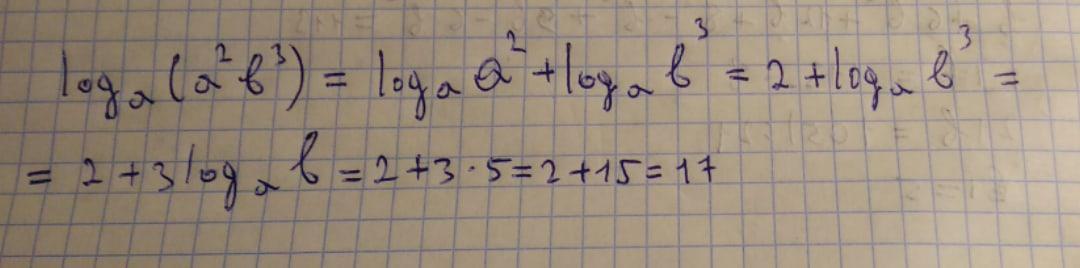 logₐ(a²b³) = logₐ a² + logₐ b³ = 2 + logₐ b³ =
= 2 + 3 logₐ b = 2 + 3 · 5 = 2 + 15 = 17